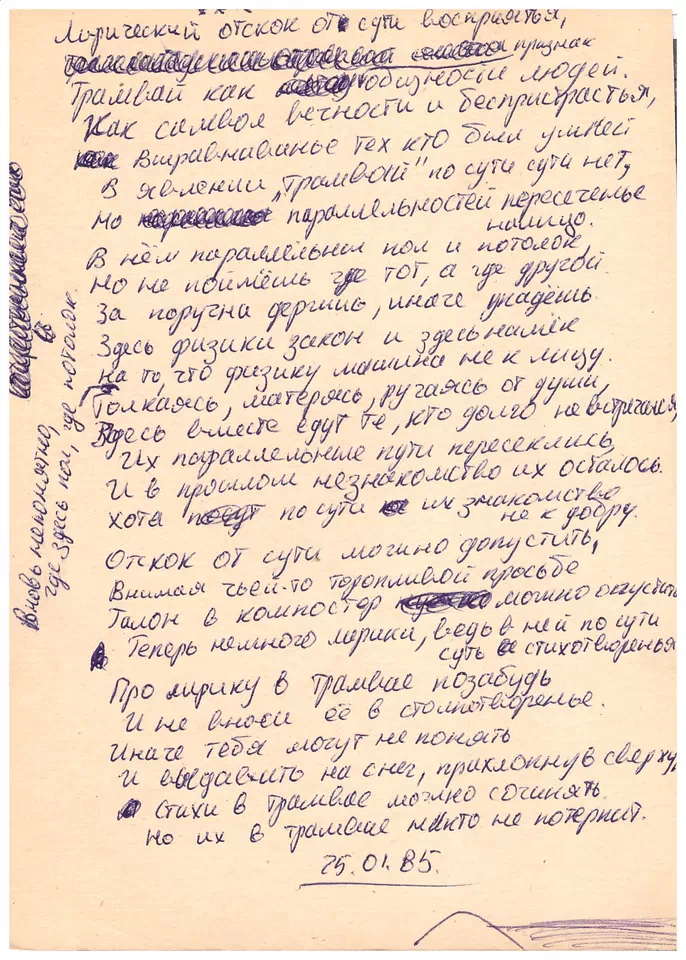 * * *
Лирический отскок от сути восприятья,
признак
Трамвай как общности людей.
Как символ вечности и беспристрастья,
Выравниванье тех кто был умней
В явлении „трамвай" по сути сути нет,
Но параллельностей пересеченье
налицо.
В нём параллельны пол и потолок,
Но не поймёшь где тот, а где другой.
За поручни держишь, иначе упадёшь
Здесь физики закон и здесь намёк
На то, что физику машина не к лицу.
Толкаясь, матерясь, ругаясь от души,
Здесь вместе едут те, кто долго не встречался,
Их параллельные пути пересеклись,
И в прошлом незнакомство их осталось.
хотя по сути их знакомство
не к добру.
Отскок от сути можно допустить,
Внимая чьей-то торопливой просьбе
Талон в компостер можно опустить
Теперь немного лирики, ведь в ней по сути
суть стихотворенья
Про лирику в трамвае позабудь
И не вноси её в столпотворенье.
Иначе тебя могут не понять
И выдавить на снег, прихлопнув сверху,
Стихи в трамвае можно сочинять
Но их в трамвае никто не потерпит.
25.01.85.
Вновь непонятно,
где здесь пол, где потолок.